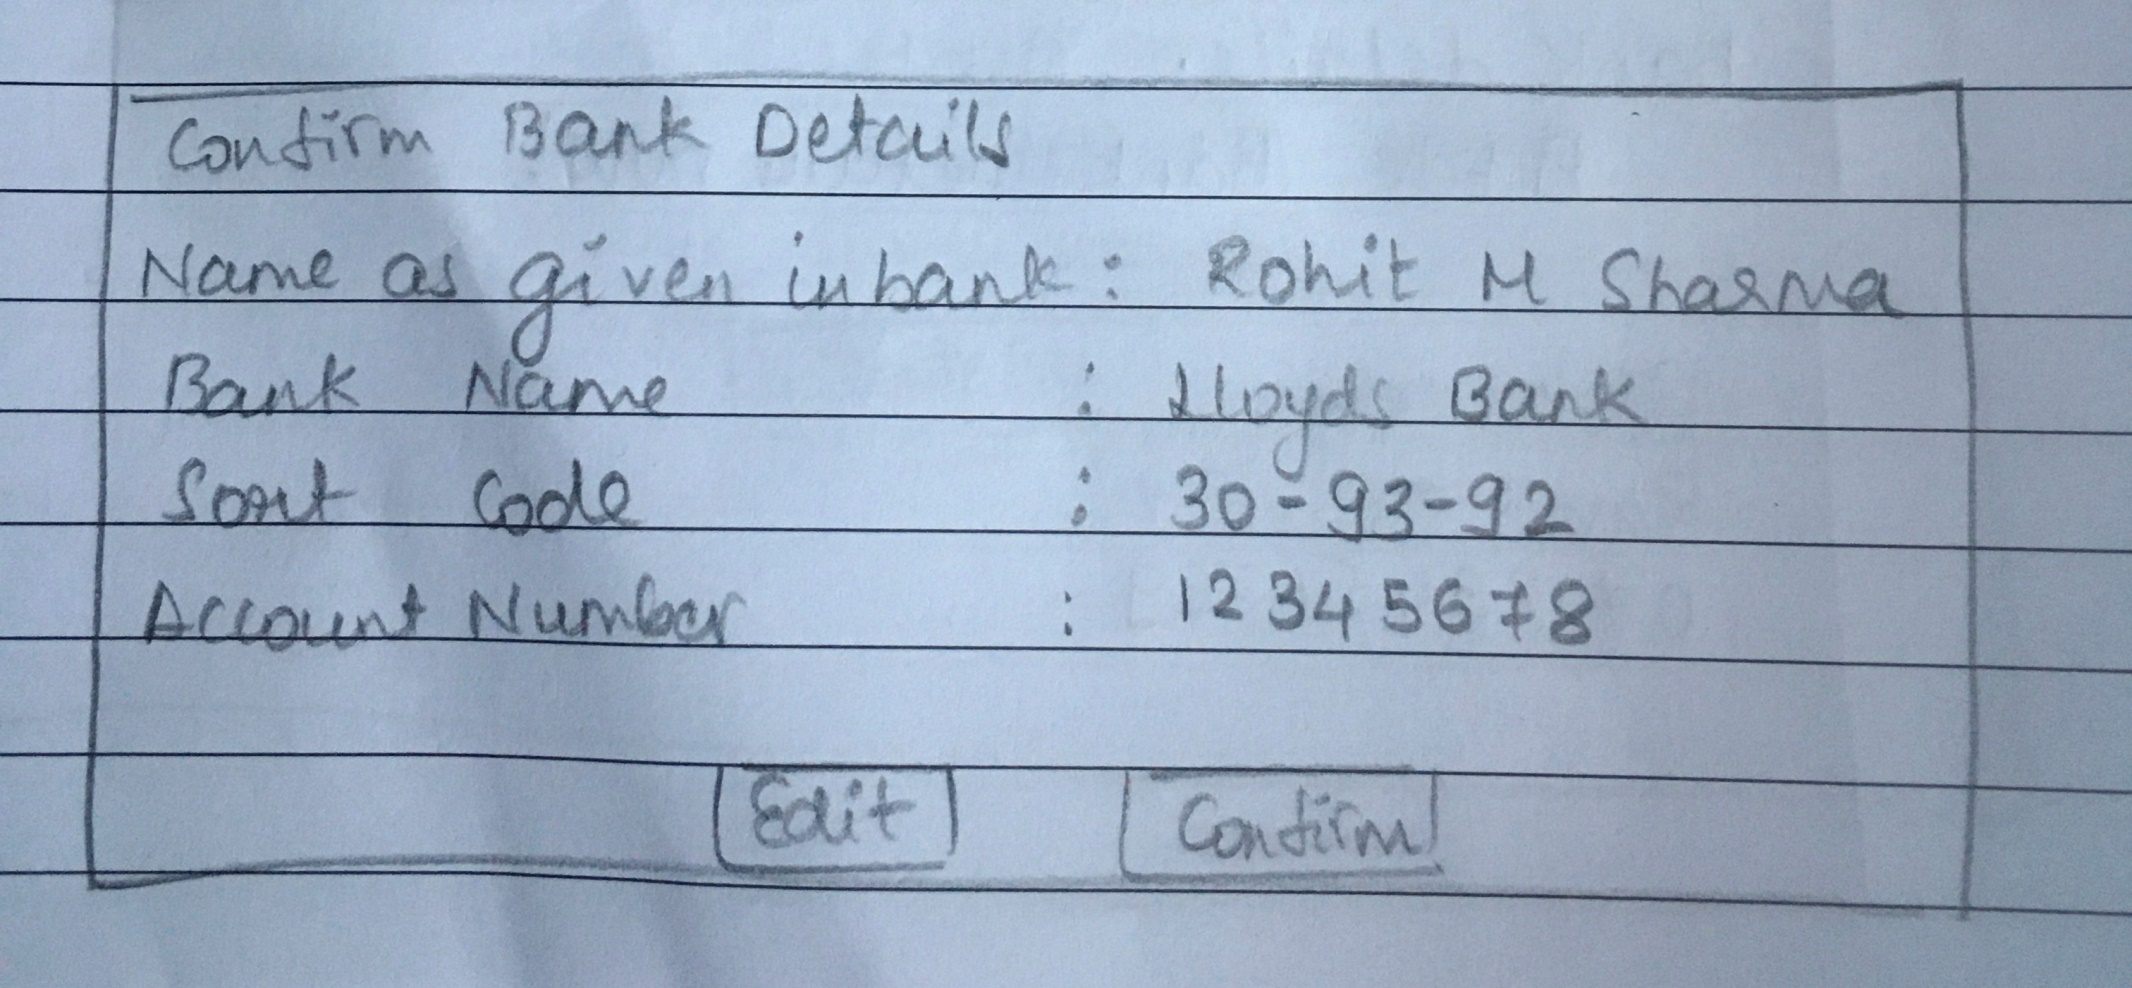 Confirm Bank Details
Name as given in bank : Rohit M Sharma
Bank Name : Lloyds Bank
Sort Code : 30-93-92
Account Number : 12345678
Edit Confirm